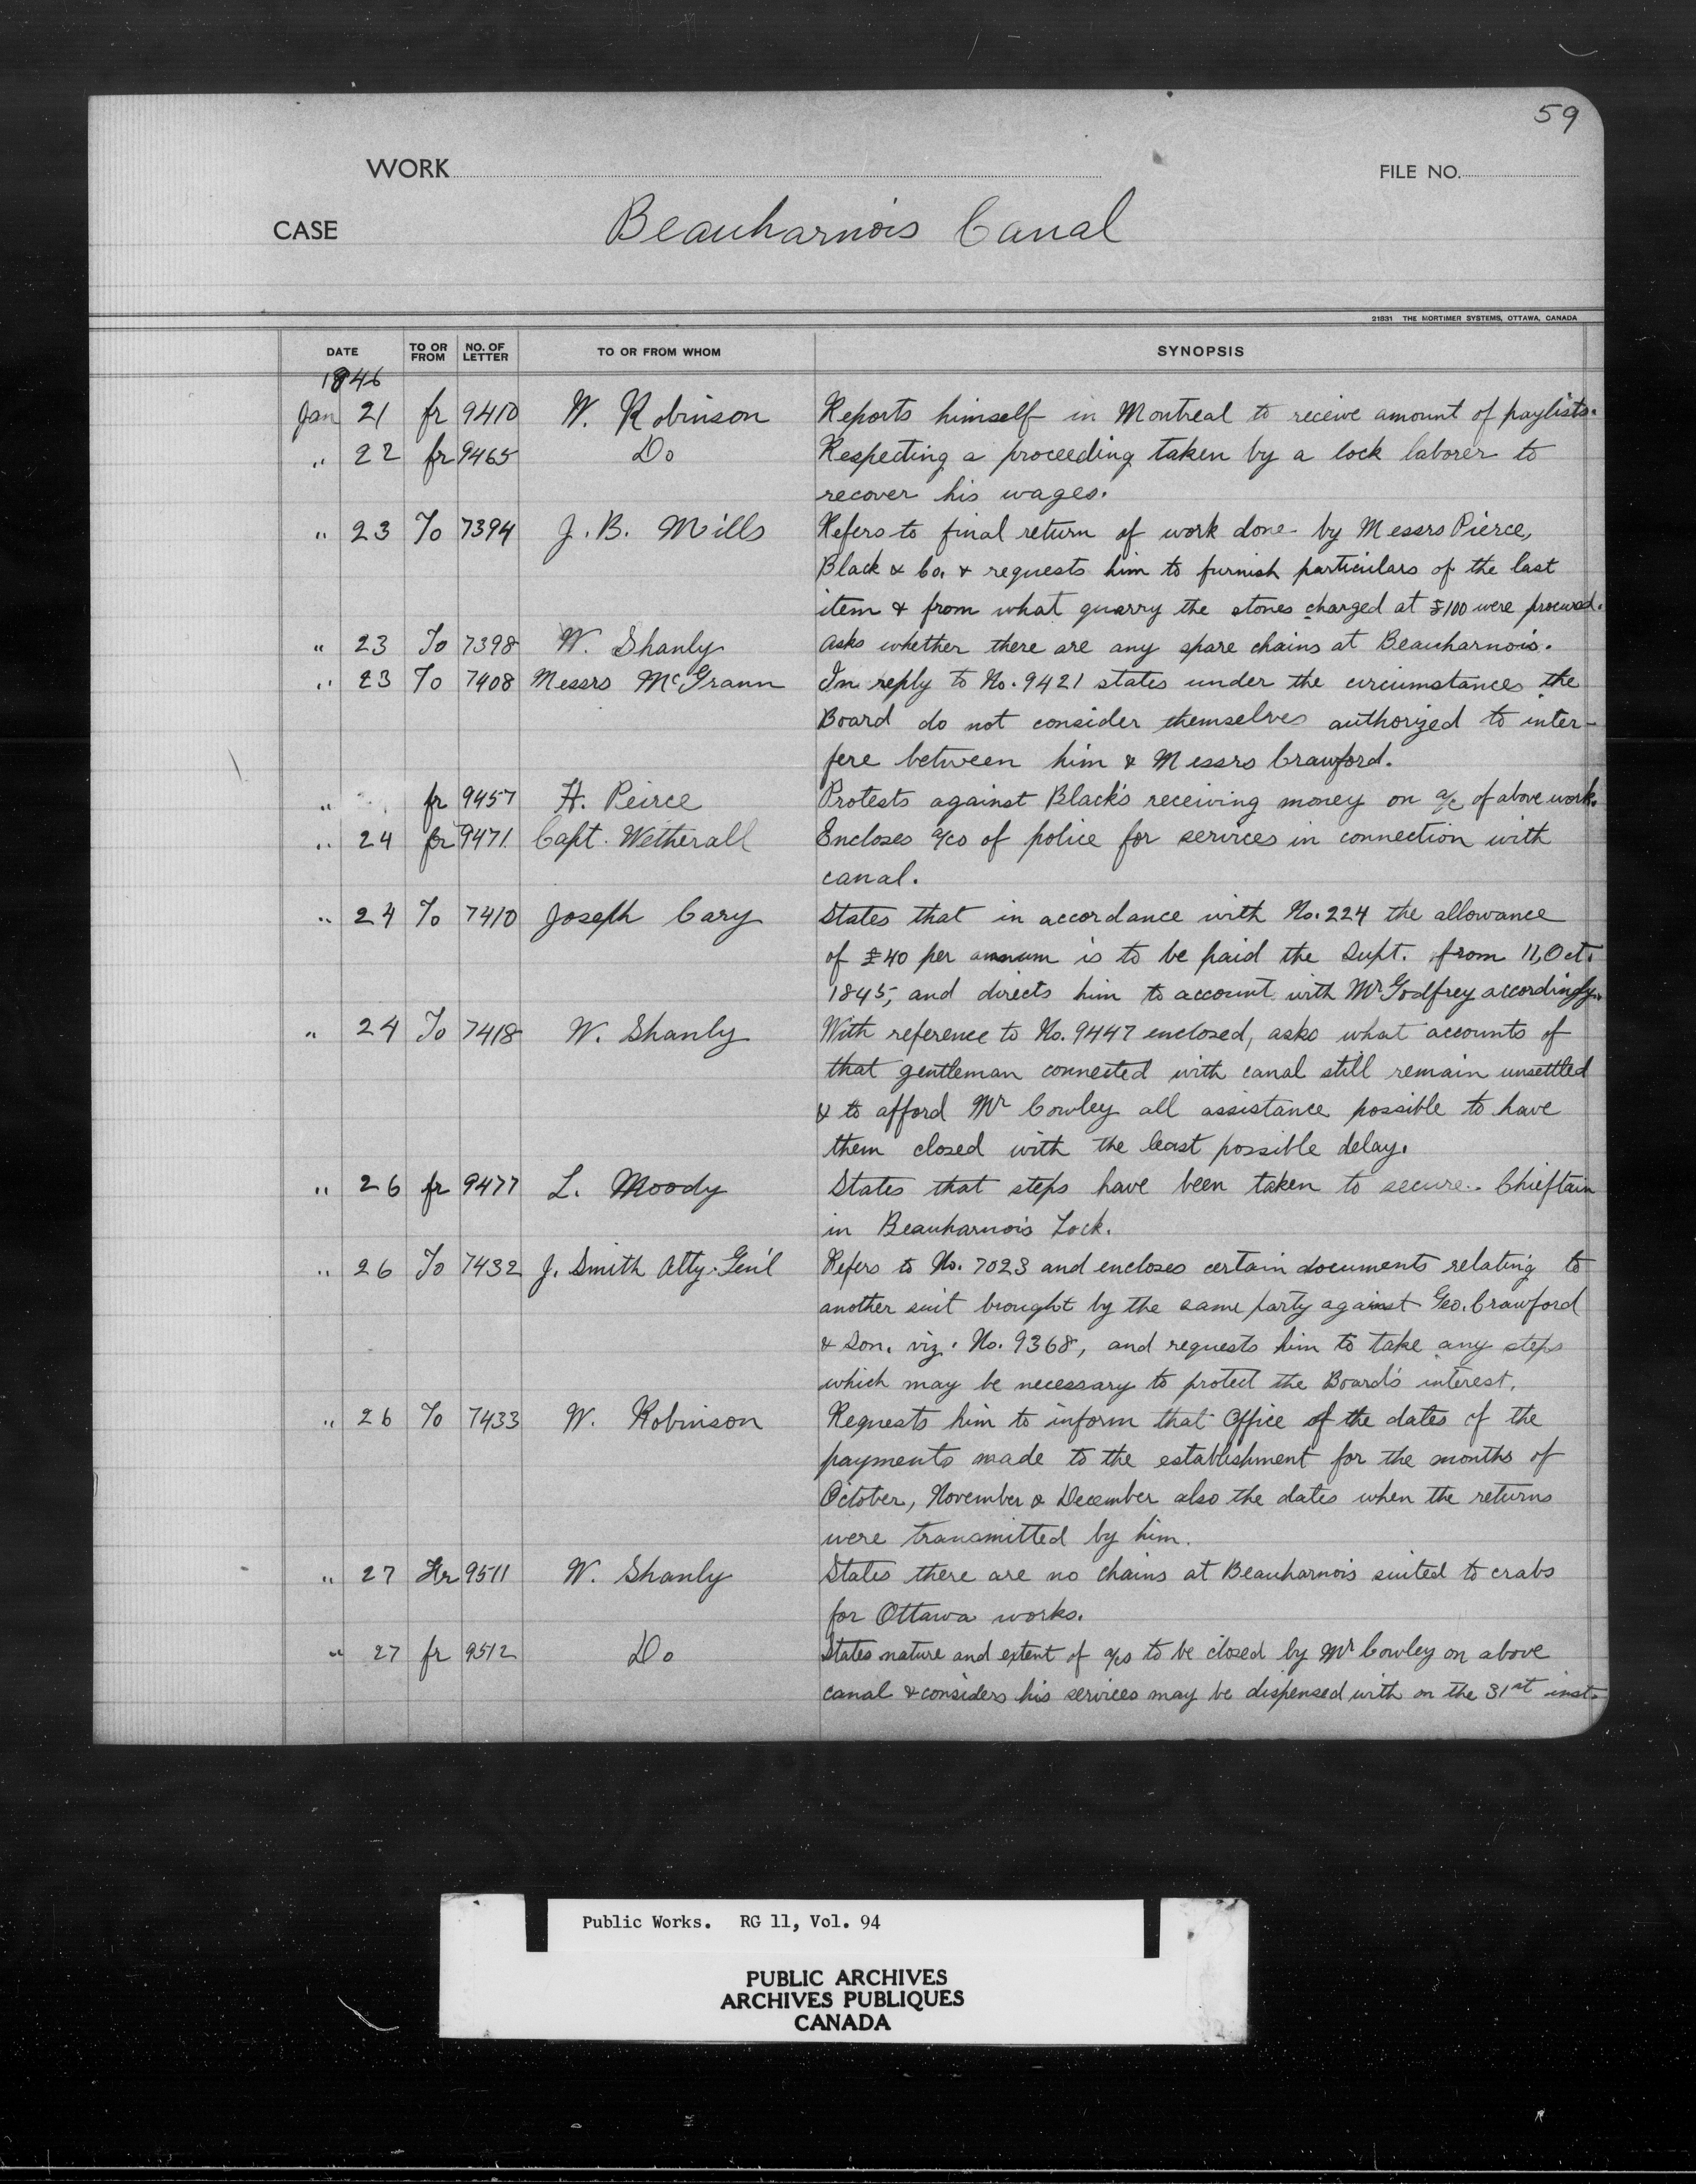 59
WORK
FILE NO.
CASE Beauharnois Canal
21831 THE MORTIMER SYSTEMS, OTTAWA, CANADA
DATE TO OR FROM NO. OF LETTER TO OR FROM WHOM SYNOPSIS
1846
Jan 21 fr 9410 W. Robinson Reports himself in Montreal to receive amount of paylists.
" 22 fr 9465 Do Respecting a proceeding taken by a lock laborer to
recover his wages.
" 23 To 7394 J. B. Mills Refers to final return of work done by Messrs Pierce,
Black & Co. & requests him to furnish particulars of the last
item & from what quarry the stones charged at £100 were procured.
" 23 To 7398 W. Shanly Asks whether there are any spare chains at Beauharnois.
" 23 To 7408 Messrs McGrann In reply to No. 9421 states under the circumstances the
Board do not consider themselves authorized to inter-
fere between him & Messrs Crawford.
" fr 9457 H. Peirce Protests against Black's receiving money on a/c of above work.
" 24 fr 9471 Capt. Wetherall Encloses a/cs of police for services in connection with
canal.
" 24 To 7410 Joseph Cary States that in accordance with No. 224 the allowance
of £40 per annum is to be paid the Supt. from 11, Oct.
1845, and directs him to account with Mr Godfrey accordingly.
" 24 To 7418 W. Shanly With reference to No. 9447 enclosed, asks what accounts of
that gentleman connected with canal still remain unsettled
& to afford Mr Cowley all assistance possible to have
them closed with the least possible delay.
" 26 fr 9477 L. Moody States that steps have been taken to secure Chieftain
in Beauharnois Lock.
" 26 To 7432 J. Smith Atty. Gen'l Refers to No. 7023 and encloses certain documents relating to
another suit brought by the same party against Geo. Crawford
& Son. viz. No. 9368, and requests him to take any steps
which may be necessary to protect the Board's interest.
" 26 To 7433 W. Robinson Requests him to inform that Office of the dates of the
payments made to the establishment for the months of
October, November & December also the dates when the returns
were transmitted by him.
" 27 Fr 9511 W. Shanly States there are no chains at Beauharnois suited to crabs
for Ottawa works.
" 27 fr 9512 Do States nature and extent of a/cs to be closed by Mr Cowley on above
canal & considers his services may be dispensed with on the 31st inst.
Public Works. RG 11, Vol. 94
PUBLIC ARCHIVES
ARCHIVES PUBLIQUES
CANADA